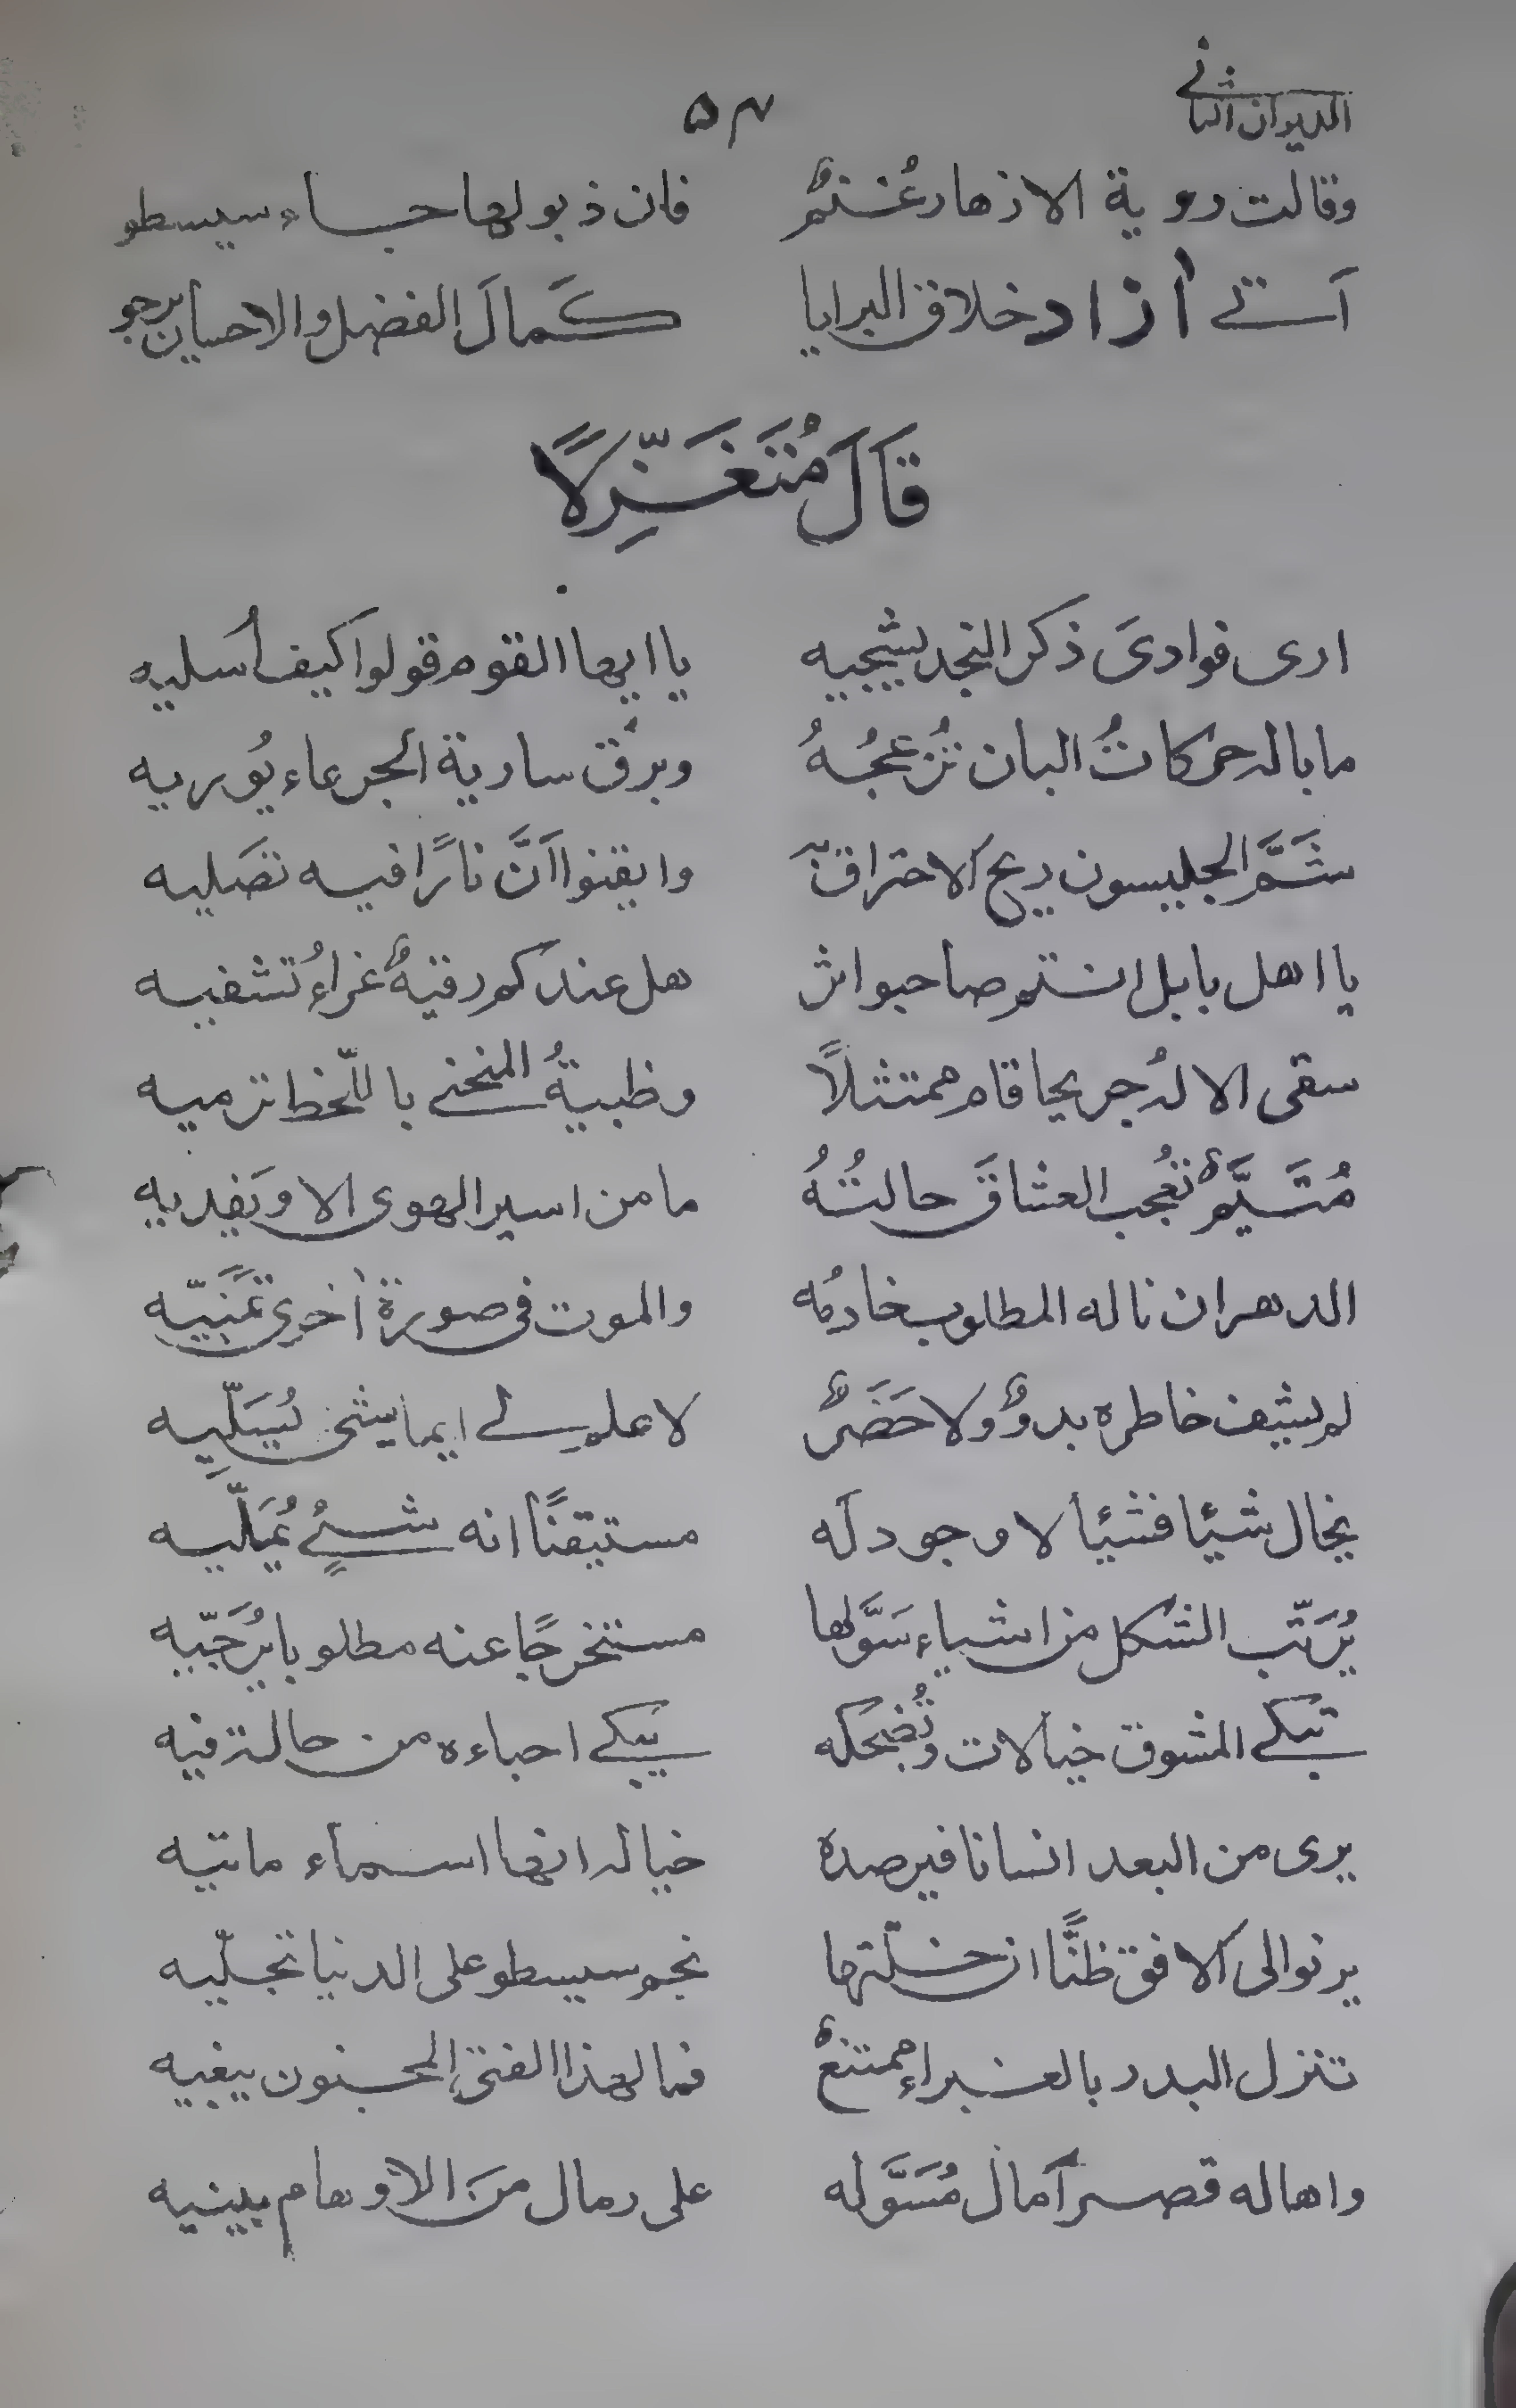 الديوان الثاني
٥٣
وقالت روية الازهار غُنْمٌ فان ذبولها جاء سيسطو
آتے اٰزاد خلاق البرايا كَمالَ الفضل والاحسان يرجو
قَالَ مُتَغَزِّلًا
ارى فوادىَ ذكر النجد يشجيه يا ايها القوم قولوا كيف اُسليه
ما باله حركاتُ البان تُزعجُهُ وبرق سارية الجرعاء يُوريه
شَمَّ الجليسون ريح الاحتراق به وايقنوا اَنَّ نارًا فيه تصَليه
يا اهل بابل انتم صاحبوا اثر هل عندكم رقيةٌ غراءُ تشفيه
سقى الالهُ جريحا قام ممتثلًا وظبيةُ المنحنے باللّحظ ترميه
مُتَيَّمٌ تُعجب العشاقَ حالتُهُ ما من اسير الهوى الا ويَفديه
الدهر ان ناله المطلوب خادمُه والموت فى صورة اُخرى تمَنّيه
لم يشف خاطره بدوٌ ولا حَضَرٌ لا علم لے ايما شئ يُسَلِّيه
يخال شيئا فشيئا لا وجود لَه مستيقنًا انه شئٌ يُمَلّيه
يُرَتّب الشكل من اشياء سَوَّلها مستخرجًا عنه مطلوبا يُرَجّيه
تبكے المشوق خيالات وتُضحكه يبكے احباءه من حالة فيه
يرى من البعد انسانا فيرصده خياله انها اسماء ماتيه
يرنو الى الافق ظنًّا ان خلّتها نجم سيسطو على الدنيا تجلّيه
تنزل البدر بالغبراءِ ممتنعٌ فما لهذا الفتى المجنون يبغيه
واها له قصر آمال مُسَوَّله على رمال منَ الاوهام يبنيه